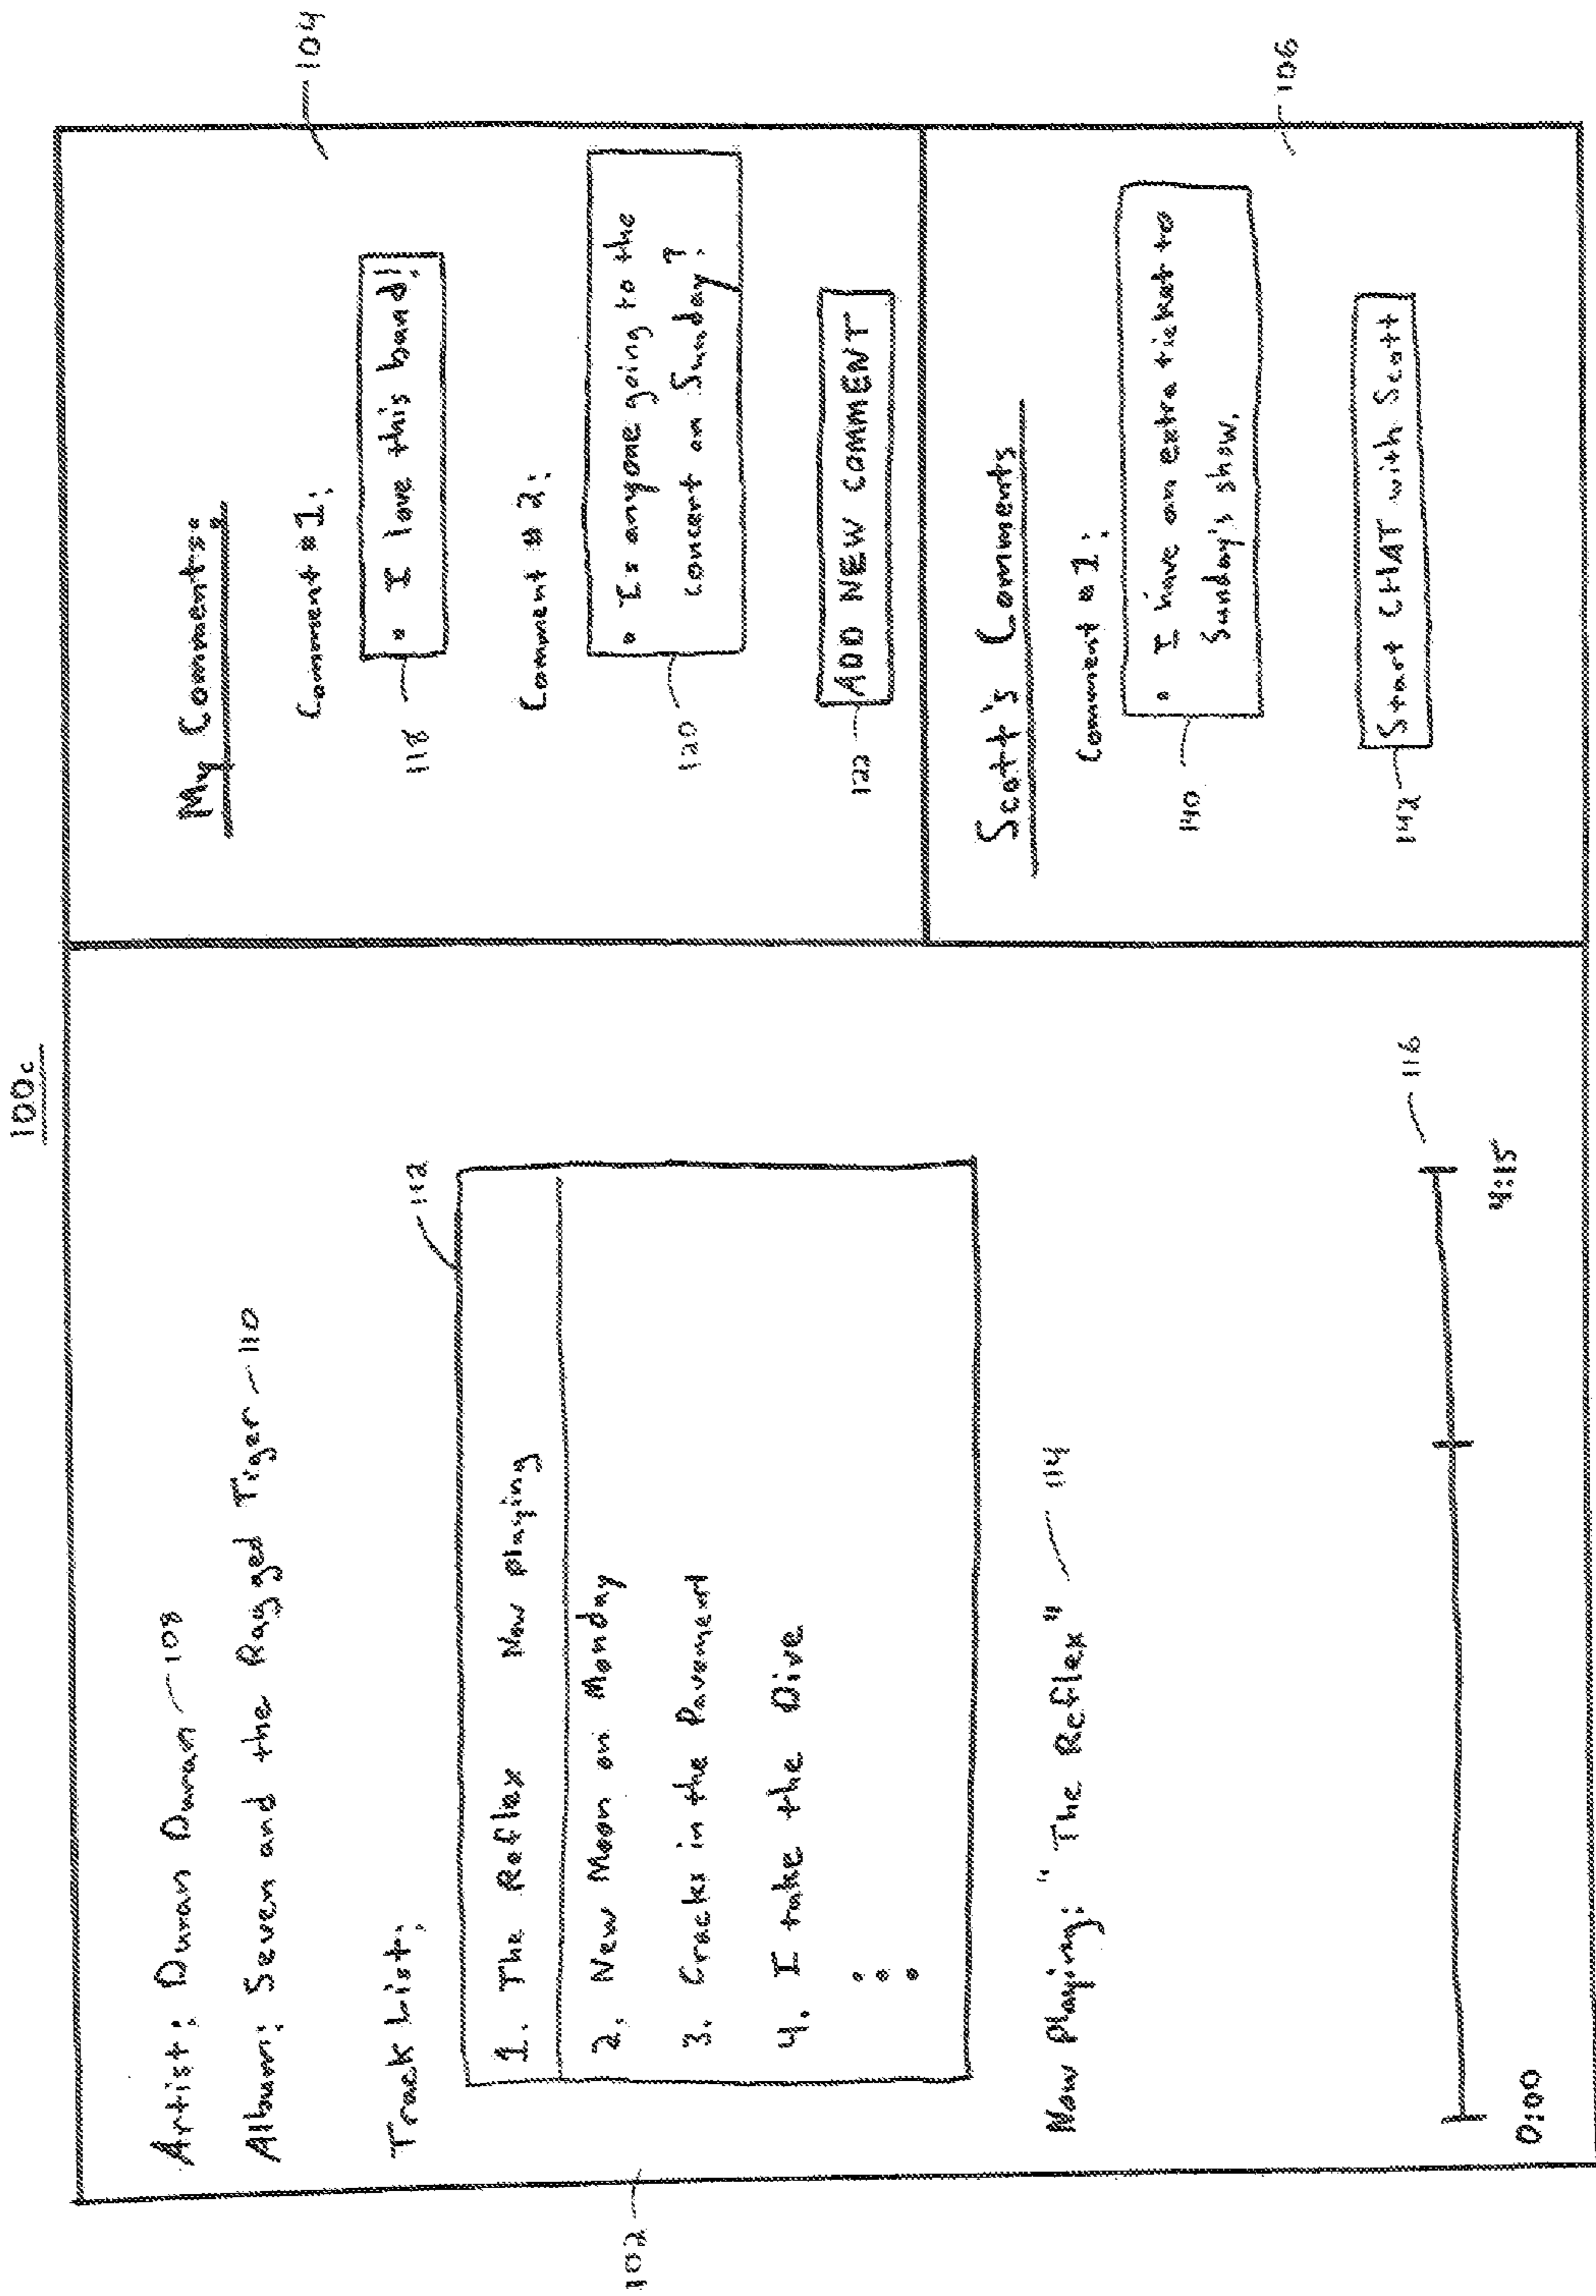 100c
102
Artist: Duran Duran 108
Album: Seven and the Ragged Tiger 110
Track List:
112
1. The Reflex Now playing
2. New Moon on Monday
3. Cracks in the Pavement
4. I take the Dive
Now Playing: "The Reflex" 114
116
0:00 4:15
104
My Comments:
Comment #1:
118 • I love this band!
Comment #2:
120 • Is anyone going to the
concert on Sunday?
122 ADD NEW COMMENT
106
Scott's Comments
Comment #1:
140 • I have an extra ticket to
Sunday's show.
142 Start CHAT with Scott